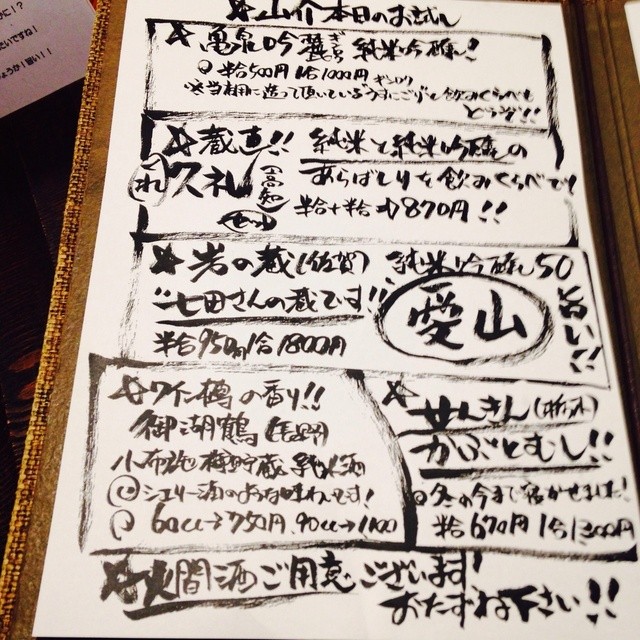 に!?
たいですね!
しょうか!旨い!!
山介本日のお試し
亀泉吟麓 純米吟醸!
半合500円 1合1000円
※当店用に造って頂いているうすにごりと飲みくらべも
どうぞ!!
蔵直!! 純米と純米吟醸の
久礼(高知) あらばしりを飲みくらべで!
半合+半合 870円!!
岩の蔵(佐賀) 純米吟醸50
"七田さんの蔵です!!
愛山
旨い!!
半合950円1合1800円
ワイン樽の香り!!
御湖鶴(長野)
小布施 樽貯蔵 純米酒
シェリー酒のような味わいです!
60cc→750円、90cc→1100
せんきん(栃木)
かぶとむし!!
冬の今まで寝かせました!
半合670円 1合1300円
火間酒ご用意ございます!
おたずね下さい!!